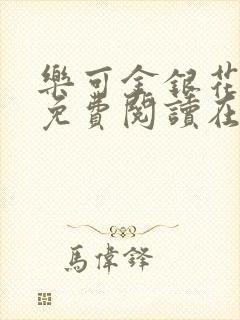 樂可金銀花
免費閱讀在
馬偉鐸